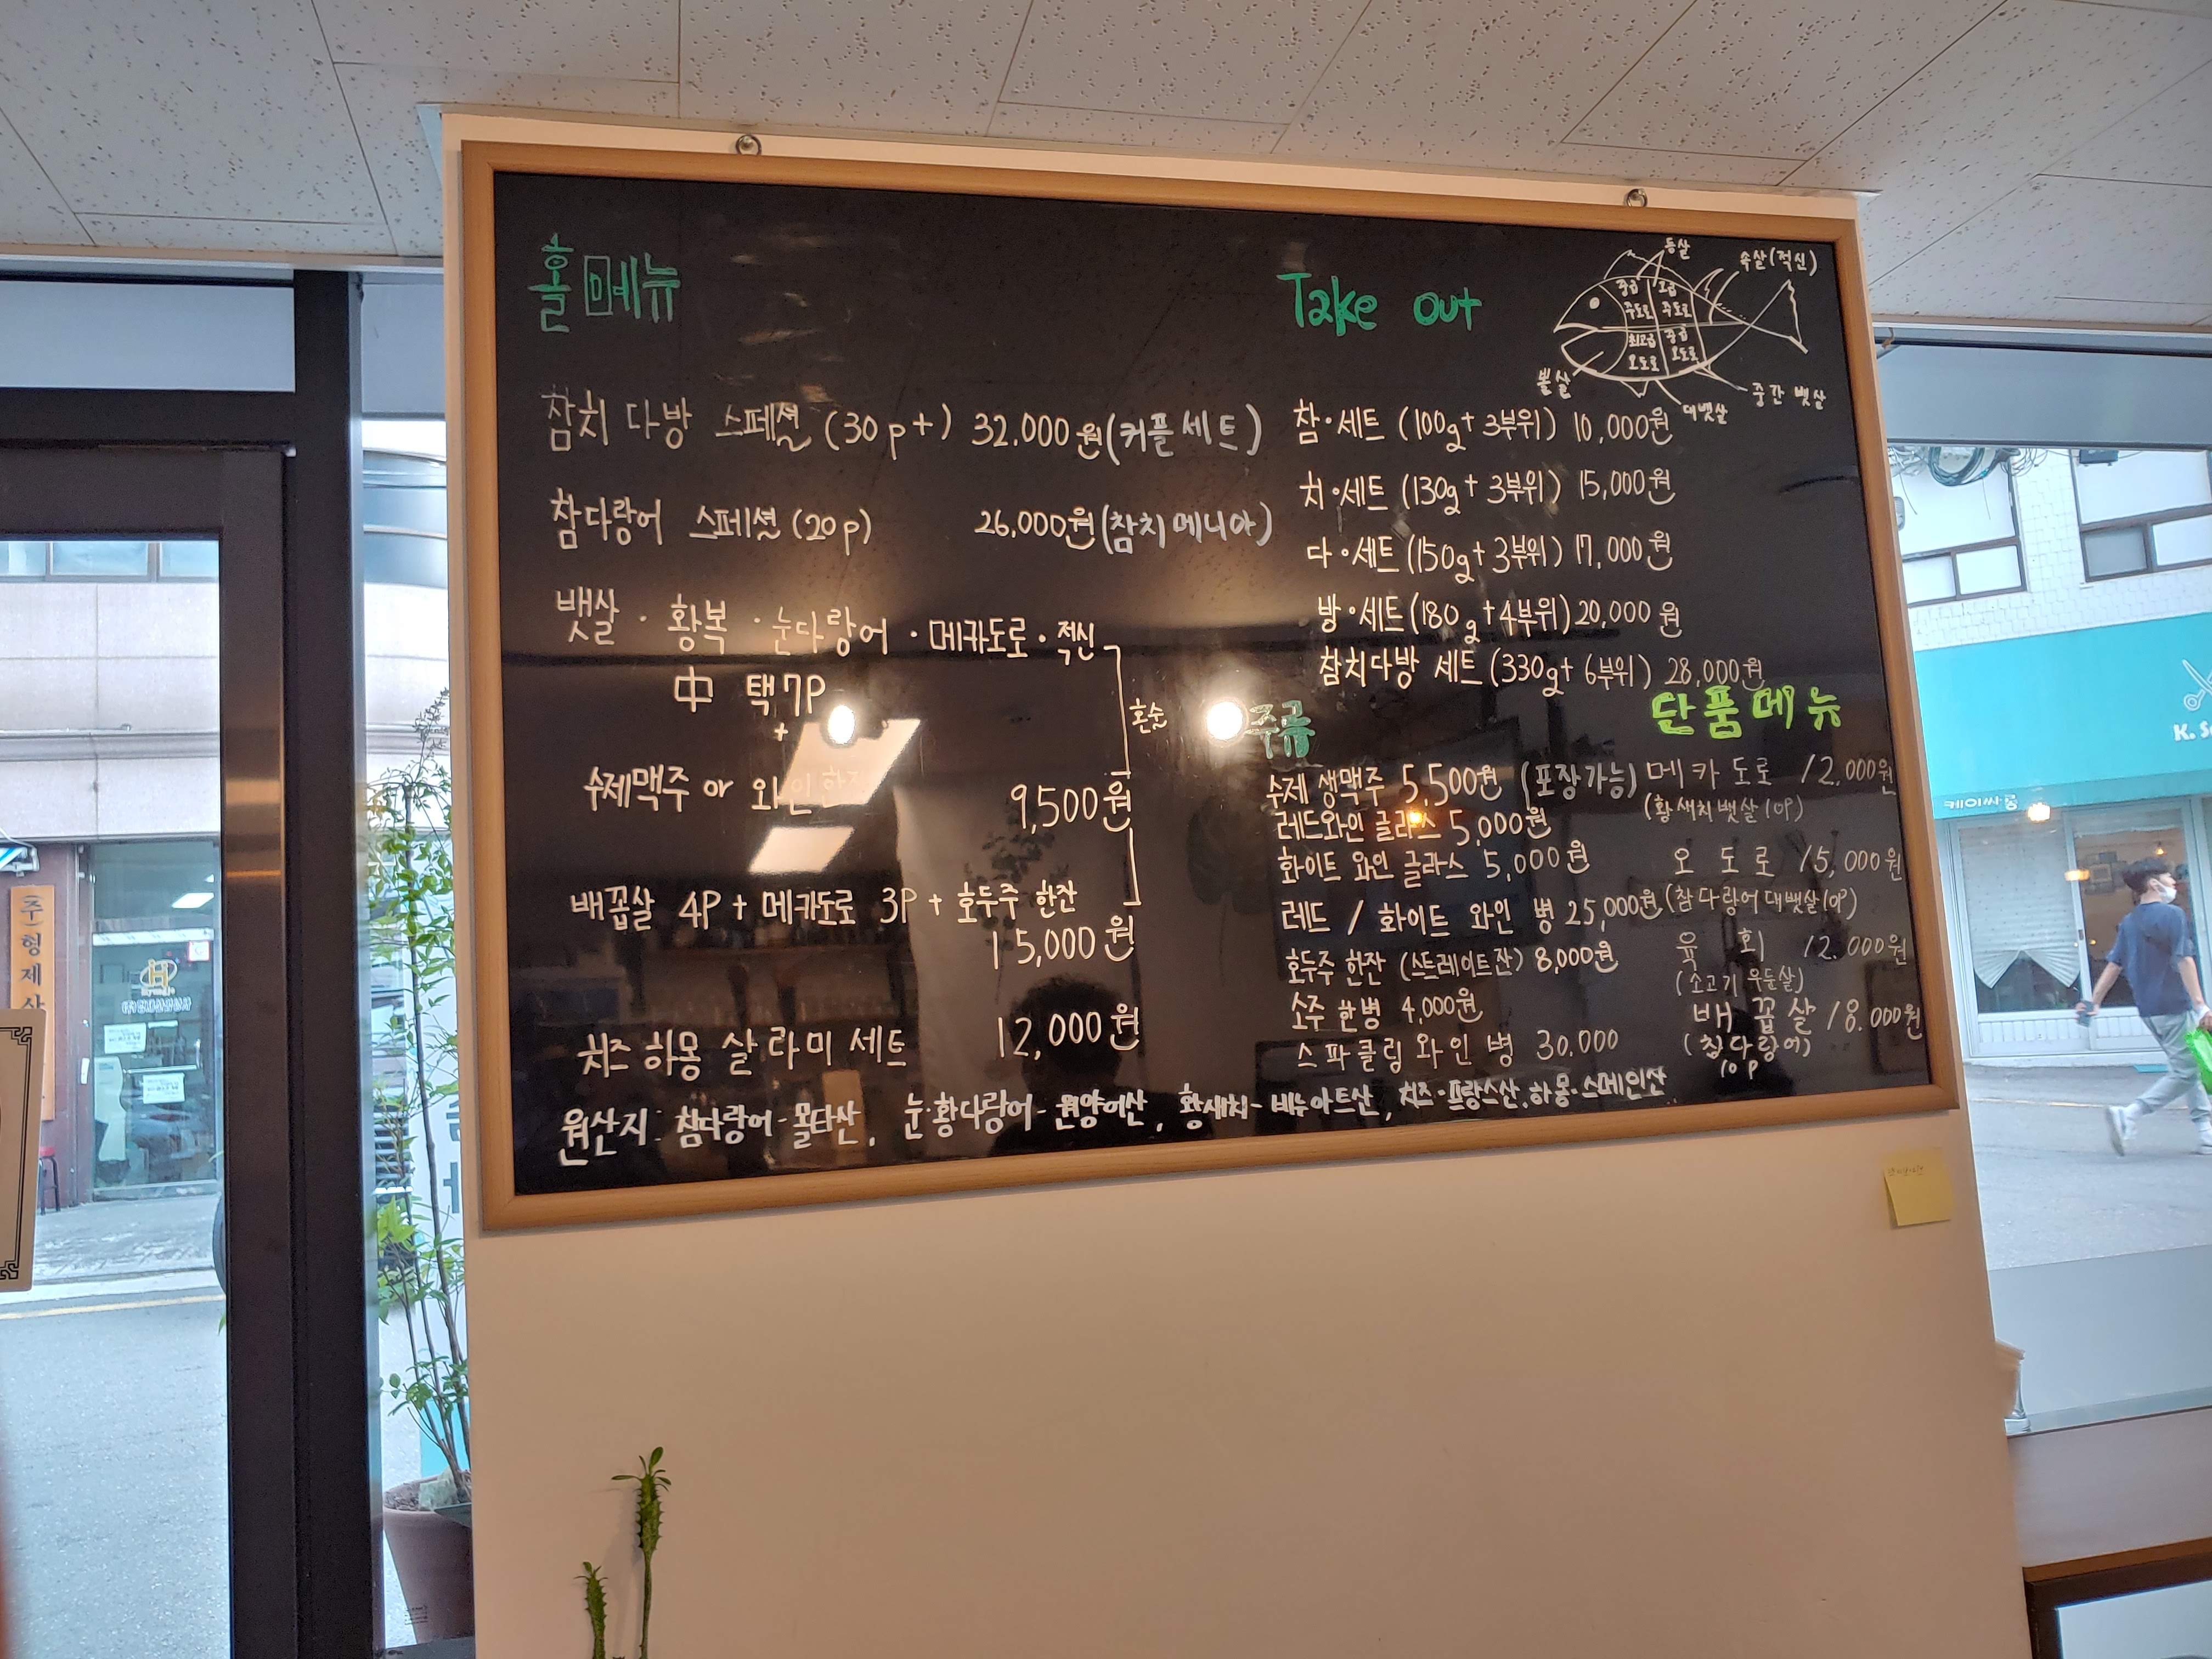 홀 메뉴
참치 다방 스페셜 (30p+) 32,000원 (커플세트)
참다랑어 스페셜 (20p) 26,000원 (참치매니아)
뱃살 · 황복 · 눈다랑어 · 메카도로 · 적신
中 택7P
+
수제맥주 or 와인한잔
9,500원
혼술
배꼽살 4P + 메카도로 3P + 호두주 한잔
15,000원
치즈 하몽 살라미 세트 12,000원
원산지 : 참다랑어-몰타산, 눈·황다랑어-원양어산, 황새치-바누아트산, 치즈·프랑스산, 하몽·스메인산
Take out
등살
속살(적신)
중급 주도로
고급 주도로
최고급 오도로
중급 오도로
볼살
대뱃살
중간 뱃살
참·세트 (100g+3부위) 10,000원
치·세트 (130g+3부위) 15,000원
다·세트 (150g+3부위) 17,000원
방·세트 (180g+4부위) 20,000원
참치다방 세트 (330g+6부위) 28,000원
주류
수제 생맥주 5,500원 (포장가능)
레드와인 글라스 5,000원
화이트 와인 글라스 5,000원
레드 / 화이트 와인 병 25,000원
호두주 한잔 (스트레이트잔) 8,000원
소주 한병 4,000원
스파클링 와인 병 30,000
단품메뉴
메카도로 12,000원
(황새치뱃살10P)
오도로 15,000원
(참다랑어대뱃살10P)
육회 12,000원
(소고기 우둔살)
배꼽살 18,000원
(참다랑어)
10P
형제상
K. S